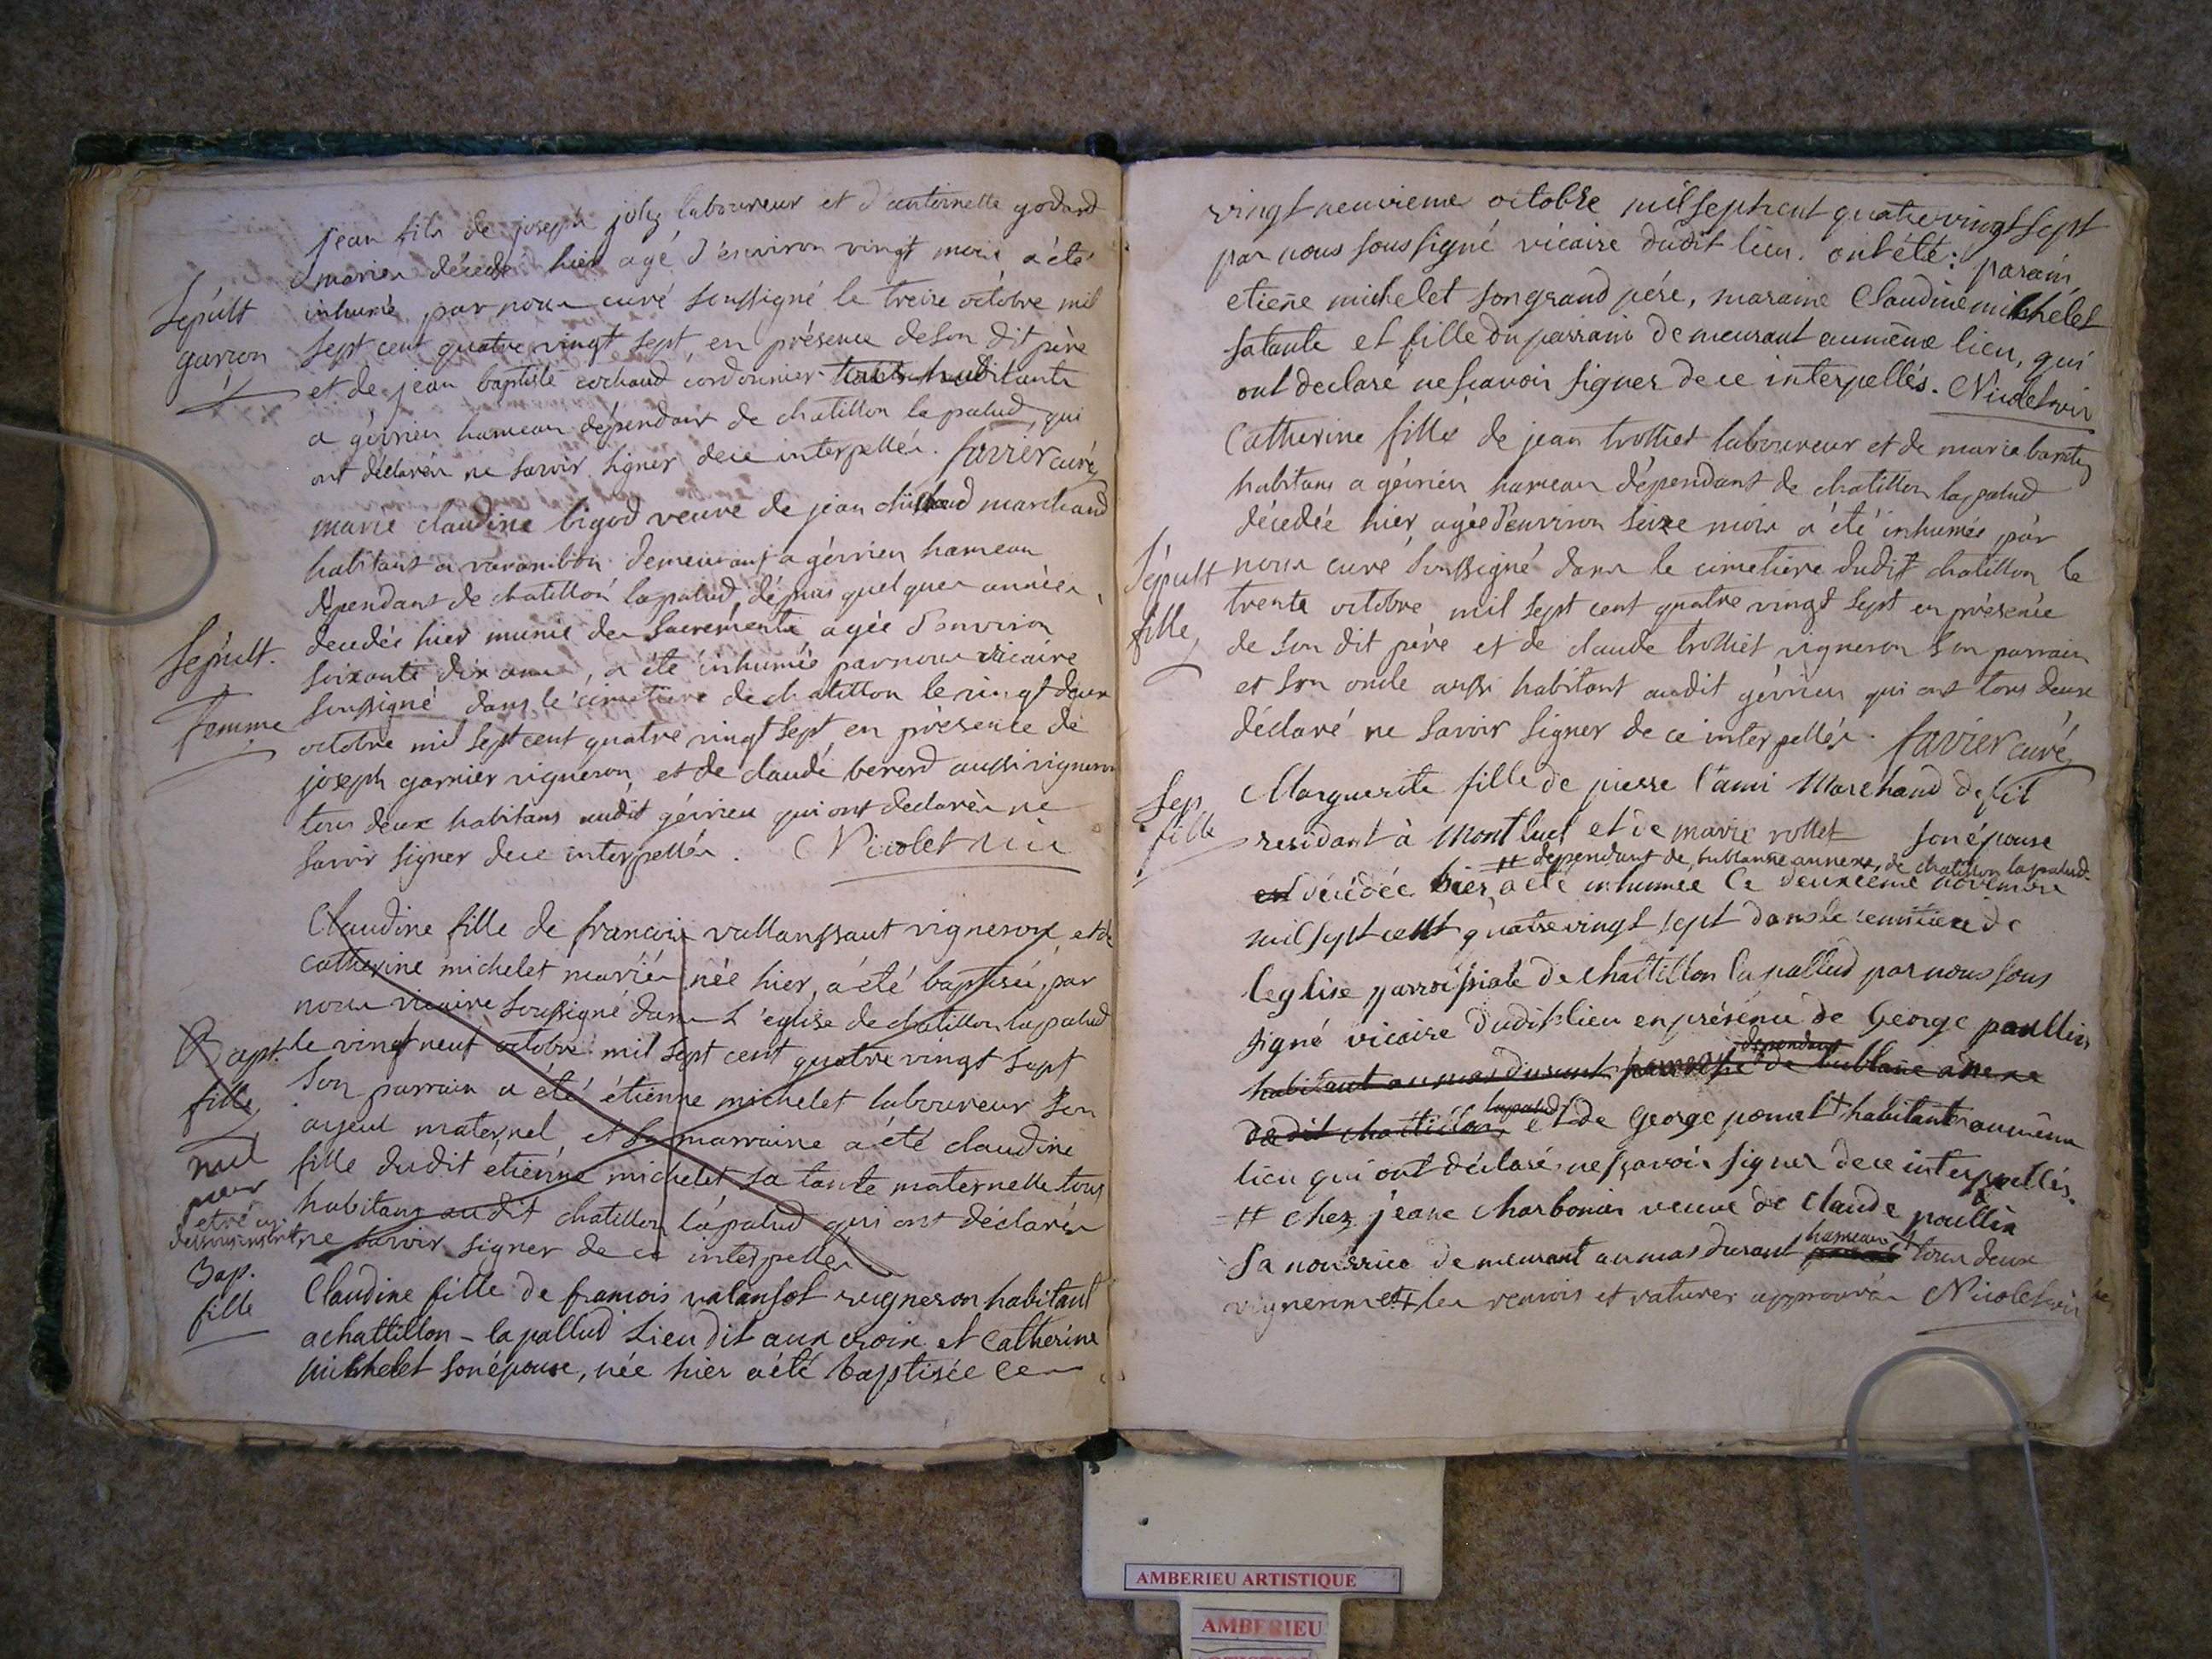 jean fils de joseph joly laboureur et d'antoinette godard
mariés décédé hier agé d'environ vingt mois a été
Sépult inhumé par nous curé soussigné le treize octobre mil
garçon sept cent quatre vingt sept en présence de son dit père
et de jean baptiste cochaud cordonnier habitants
a gévrieu hameau dépendant de chatillon la palud qui
ont déclarés ne savoir signer de ce interpellés. favier curé
marie claudine bigod veuve de jean marchand
habitant a varambon demeurant a gévrieu hameau
dépendant de chatillon lapalud dépuis quelques années,
Sépult. decedée hier munie des Sacrements agée d'environ
soixante dix ans, a été inhumée par nous vicaire
femme soussigné dans le cimetiere de chatillon le vingt deux
octobre mil sept cent quatre vingt sept en présence de
joseph garnier vigneron, et de claude bererd aussi vigneron
tous deux habitans audit gévrieu qui ont declarés ne
savoir signer de ce interpellés. Nicolet vic
Claudine fille de francois vallanssaut vigneron, et de
catherine michelet mariés née hier, a été baptisée par
nous vicaire soussigné dans L'eglise de chatillon lapalud
Bapt. le vingt neuf octobre mil sept cent quatre vingt sept
fille Son parrain a été étienne michelet laboureur son
ayeul maternel et sa marraine a été claudine
nul fille dudit étienne michelet sa tante maternelle tous
pour habitans audit chatillon lapalud qui ont déclarés
etre cy dessous inscrit ne savoir signer de ce interpellés
Bap. fille Claudine fille de francois valansot vigneron habitant
a chattillon - la pallud Lieu dit aux croix et Catherine
michelet son épouse, née hier a été baptisée ce
vingt neuvieme octobre mil sept cent quatre vingt sept
par nous soussigné vicaire dudit lieu. ont été: parain,
etiene michelet son grand pére, maraine Claudine michelet
sa tante et fille du parrain demeurant au même lieu, qui
ont declaré ne scavoir signer de ce interpellés. Nicolet vic
Catherine fille de jean trolliet laboureur et de marie
habitans a gévrieu hameau dépendant de chatillon lapalud
décedée hier, agée d'environ seize mois a été inhumée par
Sépult nous curé soussigné dans le cimetiere dudit chatillon le
fille trente octobre mil sept cent quatre vingt sept en présence
de son dit père et de claude trolliet vigneron son parrain
et son oncle aussi habitant audit gévrieu qui ont tous deux
déclaré ne savoir signer de ce interpellés. favier curé
Sep. fille Marguerite fille de pierre l'ami Marchand de fil
residant à Montluel et de marie rollet son épouse
# dependant de bublanne annexe, de chatillon lapalud
est décédée hier, a été inhumée Le deuxieme novembre
mil sept cent quatre vingt sept dans le cemitiere de
leglise parroissiale de chattillon la pallud par nous sous
signé vicaire dudit lieu en présence de George paullin
habitant au mas durant dependant de bublane annexe
dudit chattillon lapalud et de George pomet † habitants au même
lieu qui ont déclaré ne scavoir signer de ce interpellés.
# chez jeane charbonier veuve de claude paullin
sa nourrice demeurant au mas durant hameau † tous deux
vignerons et les renvois et ratures approuvés Nicolet vic
AMBERIEU ARTISTIQUE
AMBERIEU